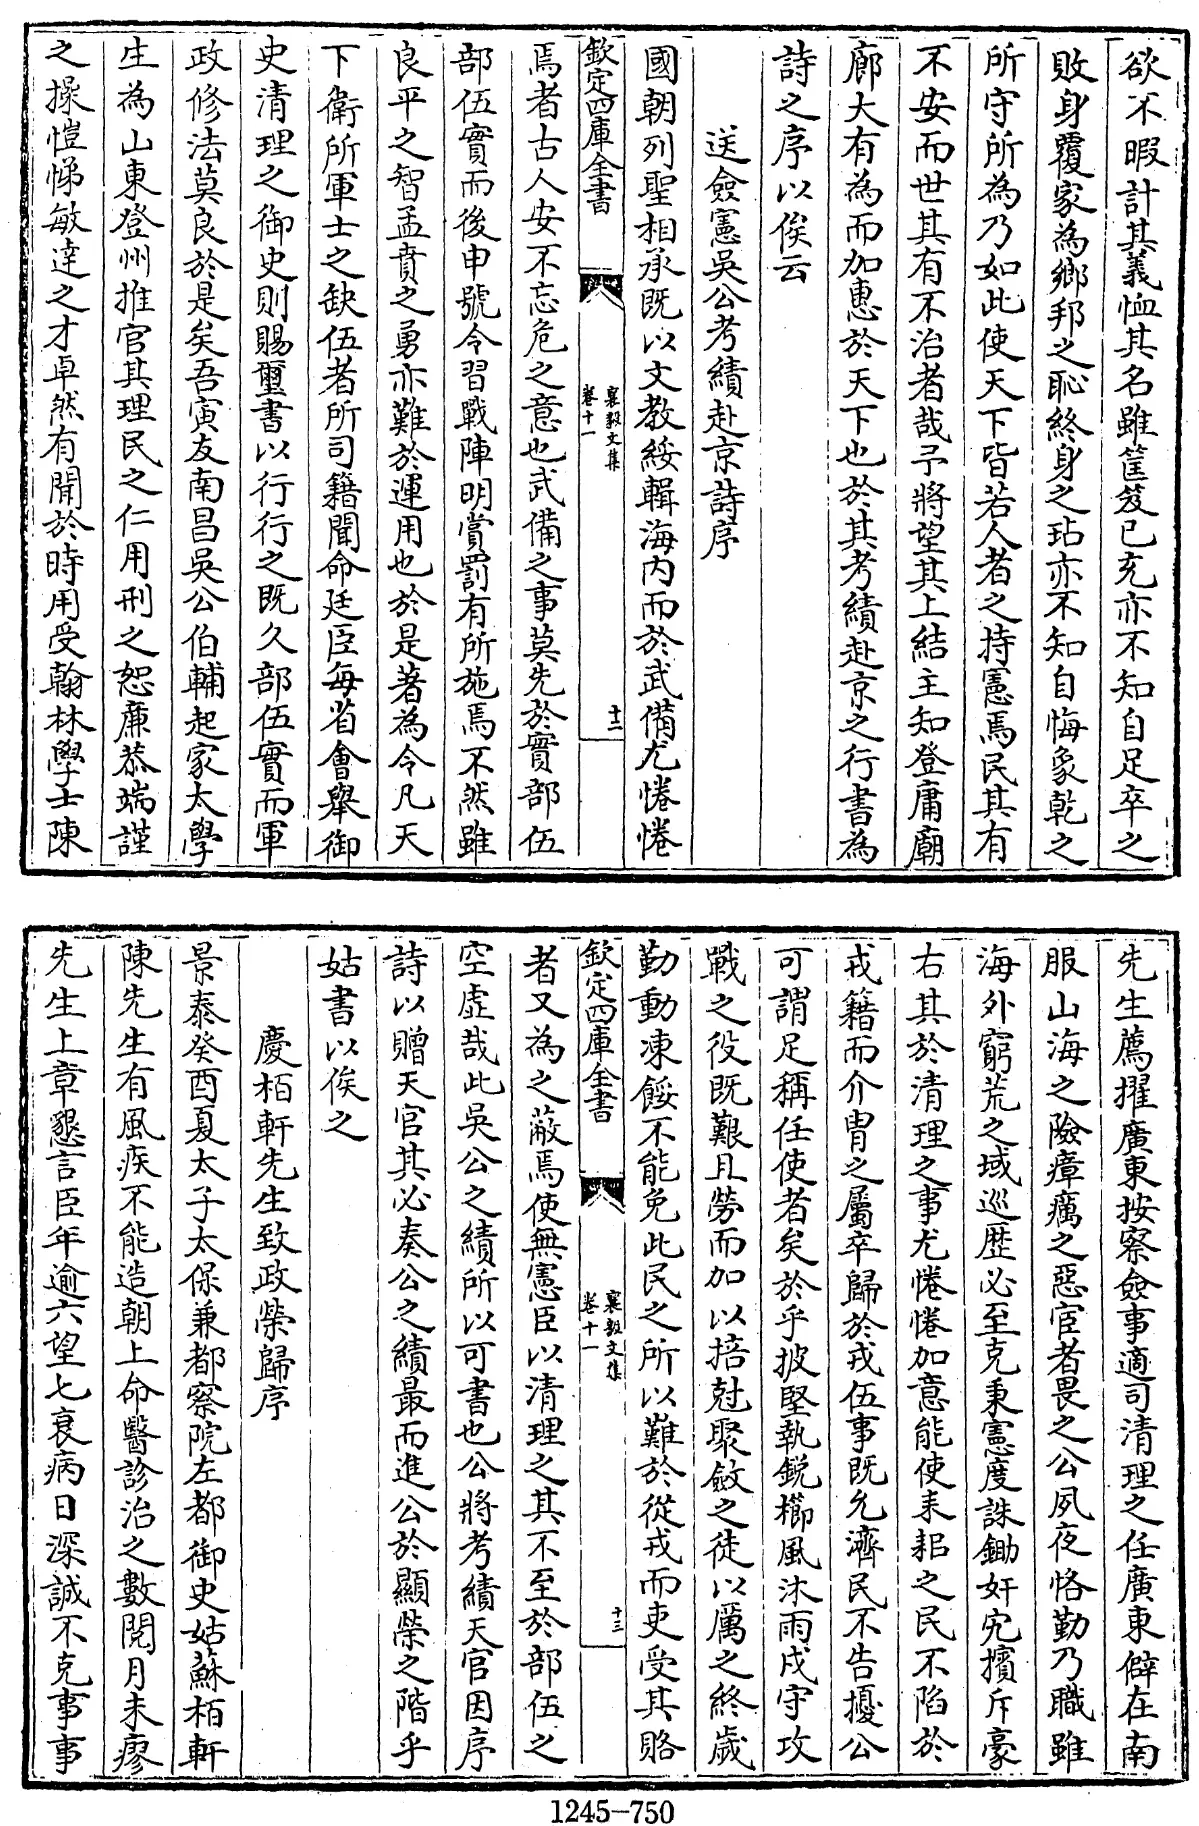 欲不暇計其義恤其名雖筐笈已充亦不知自足卒之
敗身覆家為鄉邦之恥終身之玷亦不知自悔象乾之
所守所為乃如此使天下皆若人者之持憲焉民其有
不安而世其有不治者哉予將望其上結主知登庸廟
廊大有為而加惠於天下也於其考績赴京之行書為
詩之序以俟云
送僉憲吳公考績赴京詩序
國朝列聖相承既以文教綏輯海內而於武備尤惓惓
欽定四庫全書
襄毅文集
卷十一
十二
焉者古人安不忘危之意也武備之事莫先於實部伍
部伍實而後申號令習戰陣明賞罰有所施焉不然雖
良平之智孟賁之勇亦難於運用也於是著為令凡天
下衛所軍士之缺伍者所司籍聞命廷臣每省會舉御
史清理之御史則賜璽書以行行之既久部伍實而軍
政修法莫良於是矣吾寅友南昌吳公伯輔起家太學
生為山東登州推官其理民之仁用刑之恕廉恭端謹
之操愷悌敏達之才卓然有聞於時用受翰林學士陳
先生薦擢廣東按察僉事適司清理之任廣東僻在南
服山海之險瘴癘之惡宦者畏之公夙夜恪勤乃職雖
海外窮荒之域巡歷必至克秉憲度誅鋤奸宄擯斥豪
右其於清理之事尤惓惓加意能使耒耜之民不陷於
戎籍而介胄之屬卒歸於戎伍事既允濟民不告擾公
可謂足稱任使者矣於乎披堅執銳櫛風沐雨戍守攻
戰之役既艱且勞而加以掊尅聚斂之徒以厲之終歲
勤動凍餒不能免此民之所以難於從戎而吏受其賂
欽定四庫全書
襄毅文集
卷十一
十三
者又為之蔽焉使無憲臣以清理之其不至於部伍之
空虛哉此吳公之績所以可書也公將考績天官因序
詩以贈天官其必奏公之績最而進公於顯榮之階乎
姑書以俟之
慶栢軒先生致政榮歸序
景泰癸酉夏太子太保兼都察院左都御史姑蘇栢軒
陳先生有風疾不能造朝上命醫診治之數閱月未瘳
先生上章懇言臣年逾六望七衰病日深誠不克事事
1245-750